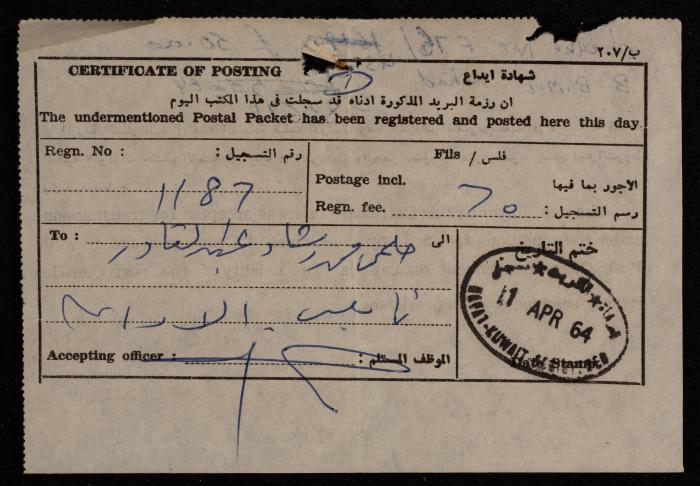 ب/٢٠٧
CERTIFICATE OF POSTING
شهادة ايداع
ان رزمة البريد المذكورة ادناه قد سجلت في هذا المكتب اليوم
The undermentioned Postal Packet has been registered and posted here this day.
Regn. No :
رقم التسجيل :
1187
Fils / فلس
Postage incl.
الاجور بما فيها
Regn. fee.
رسم التسجيل :
70
To :
الى
حلمي محمد رشاد عبد القادر
نابلس - الاردن
ختم التاريخ
11 APR 64
KUWAIT
Date Stamp
Accepting officer :
الموظف المستلم :